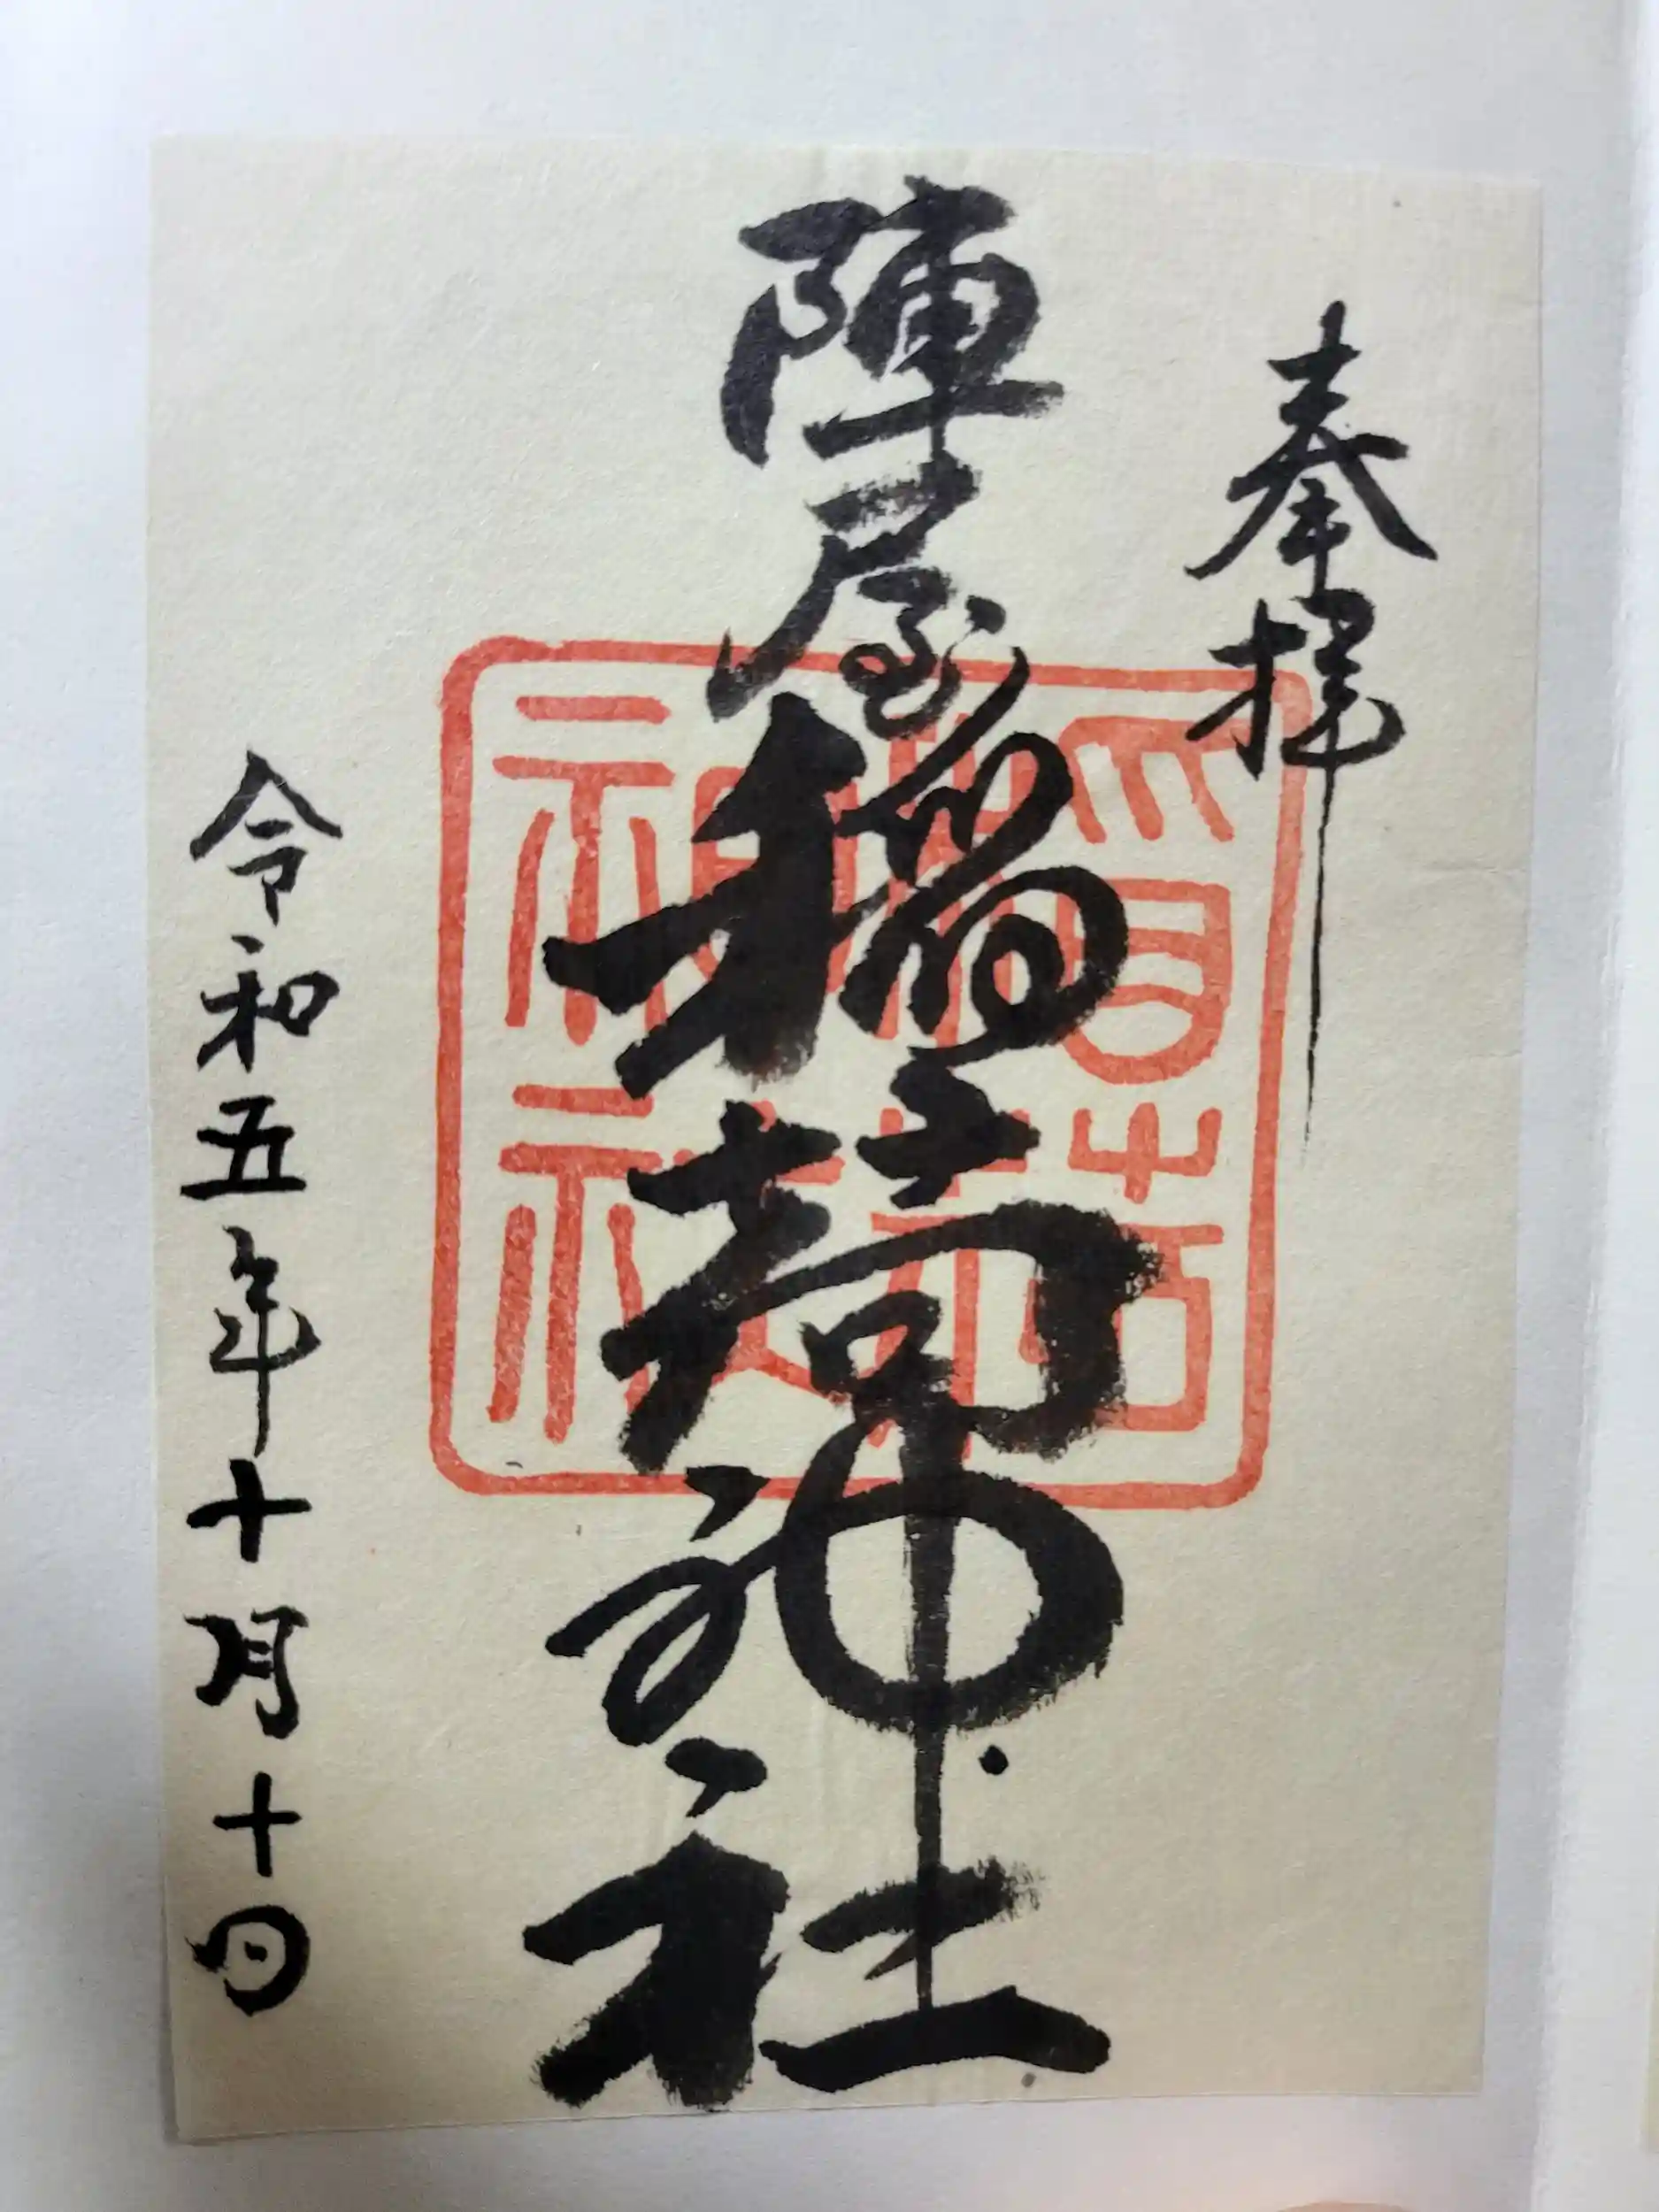 奉拝
陣屋稲荷神社
令和五年十月十日
稻荷
神社